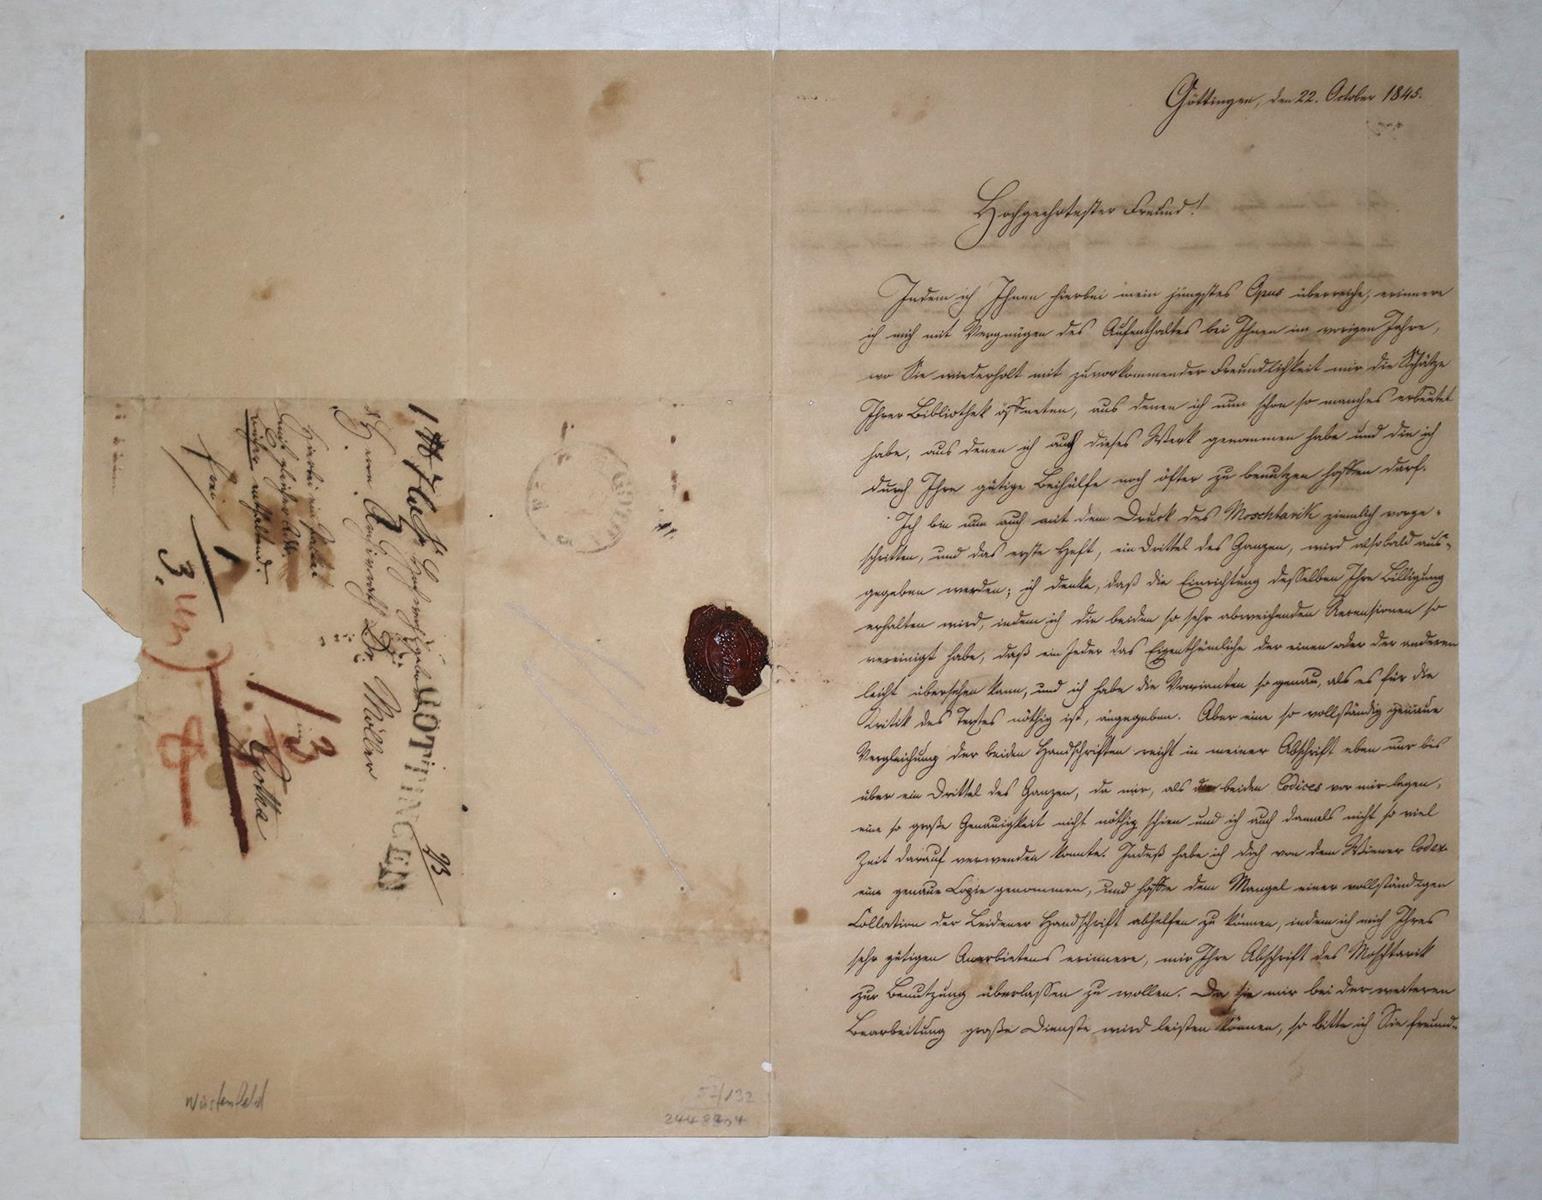 Göttingen, den 22. October 1845.
Hochgeehrtester Freund!
Indem ich Ihnen hierbei mein jüngstes Opus überreiche, erinnere
ich mich mit Vergnügen des Aufenthaltes bei Ihnen im vorigen Jahre,
wo Sie wiederholt mit zuvorkommender Freundlichkeit mir die Schätze
Ihrer Bibliothek öffneten, aus denen ich nun schon so manches erbeutet
habe, aus denen ich auch dieses Werk genommen habe und die ich
durch Ihre gütige Beihülfe noch öfter zu benutzen hoffen darf.
Ich bin nun auch mit dem Druck des Moschtarik ziemlich vorge-
schritten, und das erste Heft, ein Drittel des Ganzen, wird alsobald aus-
gegeben werden; ich denke, daß die Einrichtung desselben Ihre Billigung
erhalten wird, indem ich die beiden so sehr abweichenden Recensionen so
vereinigt habe, daß ein Jeder das Eigenthümliche der einen oder der anderen
leicht übersehen kann, und ich habe die Varianten so genau, als es für die
Kritik des Textes nöthig ist, angegeben. Aber eine so vollständig genaue
Vergleichung der beiden Handschriften reicht in meiner Abschrift eben nur bis
über ein Drittel des Ganzen, da mir, als die beiden Codices vor mir lagen,
eine so große Genauigkeit nicht nöthig schien und ich auch damals nicht so viel
Zeit darauf verwenden konnte. Indeß habe ich doch von dem Wiener Codex
eine genaue Copie genommen, und hoffe dem Mangel einer vollständigen
Collation der Leidener Handschrift abhelfen zu können, indem ich mich Ihres
sehr gütigen Anerbietens erinnere, mir Ihre Abschrift des Moschtarik
zur Benutzung überlassen zu wollen. Da sie mir bei der weiteren
Bearbeitung große Dienste wird leisten können, so bitte ich Sie freund-
Herrn Archivrath Dr. Möller
Gotha
Hierbei ein Paket
frei
GÖTTINGEN
1/3
Wüstenfeld